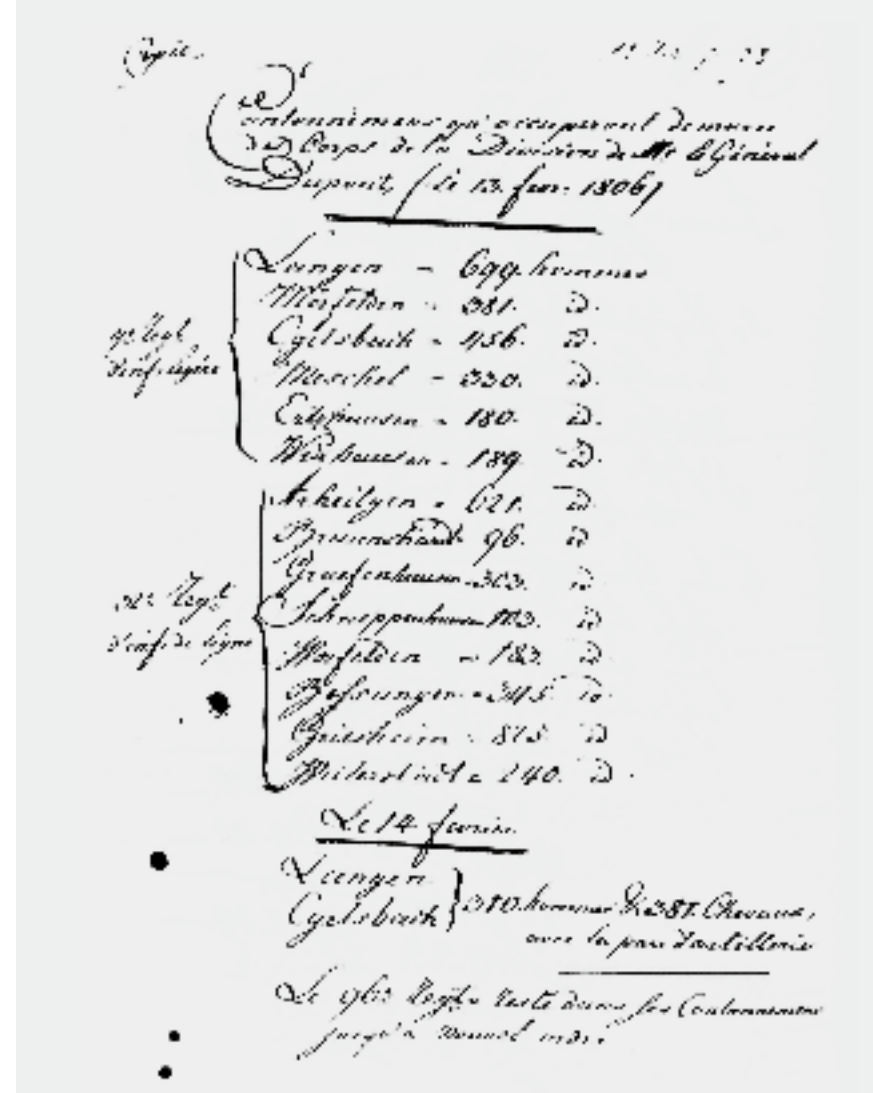 Copie.
Cantonnemens qu'occuperont demain
les Corps de la Division de Mr. le Général
Dupont, (le 13. fevr. 1806)
Langen - 699 hommes
Mörfelden - 381. id.
9e. Regt.
d'inf. légère
Egelsbach - 456. id.
Meschel - 330. id.
Erzhausen - 180. id.
Wixhausen - 189. id.
Arheilgen - 621. id.
Braunshardt 96. id
Graefenhausen - 303. id
32e. Regt.
d'inf. de ligne
Schneppenhausen 103. id
Worfelden - 183. id
Bessungen - 345. id.
Griesheim - 875. id
Weiterstadt - 240. id.
Le 14 fevrier
Langen
Egelsbach
310. hommes & 381. Chevaux,
avec le parc d'artillerie
Le 96e Regt. reste dans ses Cantonnemens
jusqu'à nouvel ordre